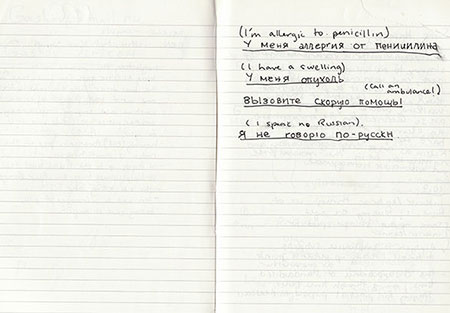 (I'm allergic to penicillin)
У меня аллергия от пенициллина
(I have a swelling)
У меня опухоль
(Call an
ambulance!)
Вызовите скорую помощь!
(I speak no Russian).
Я не говорю по-русски